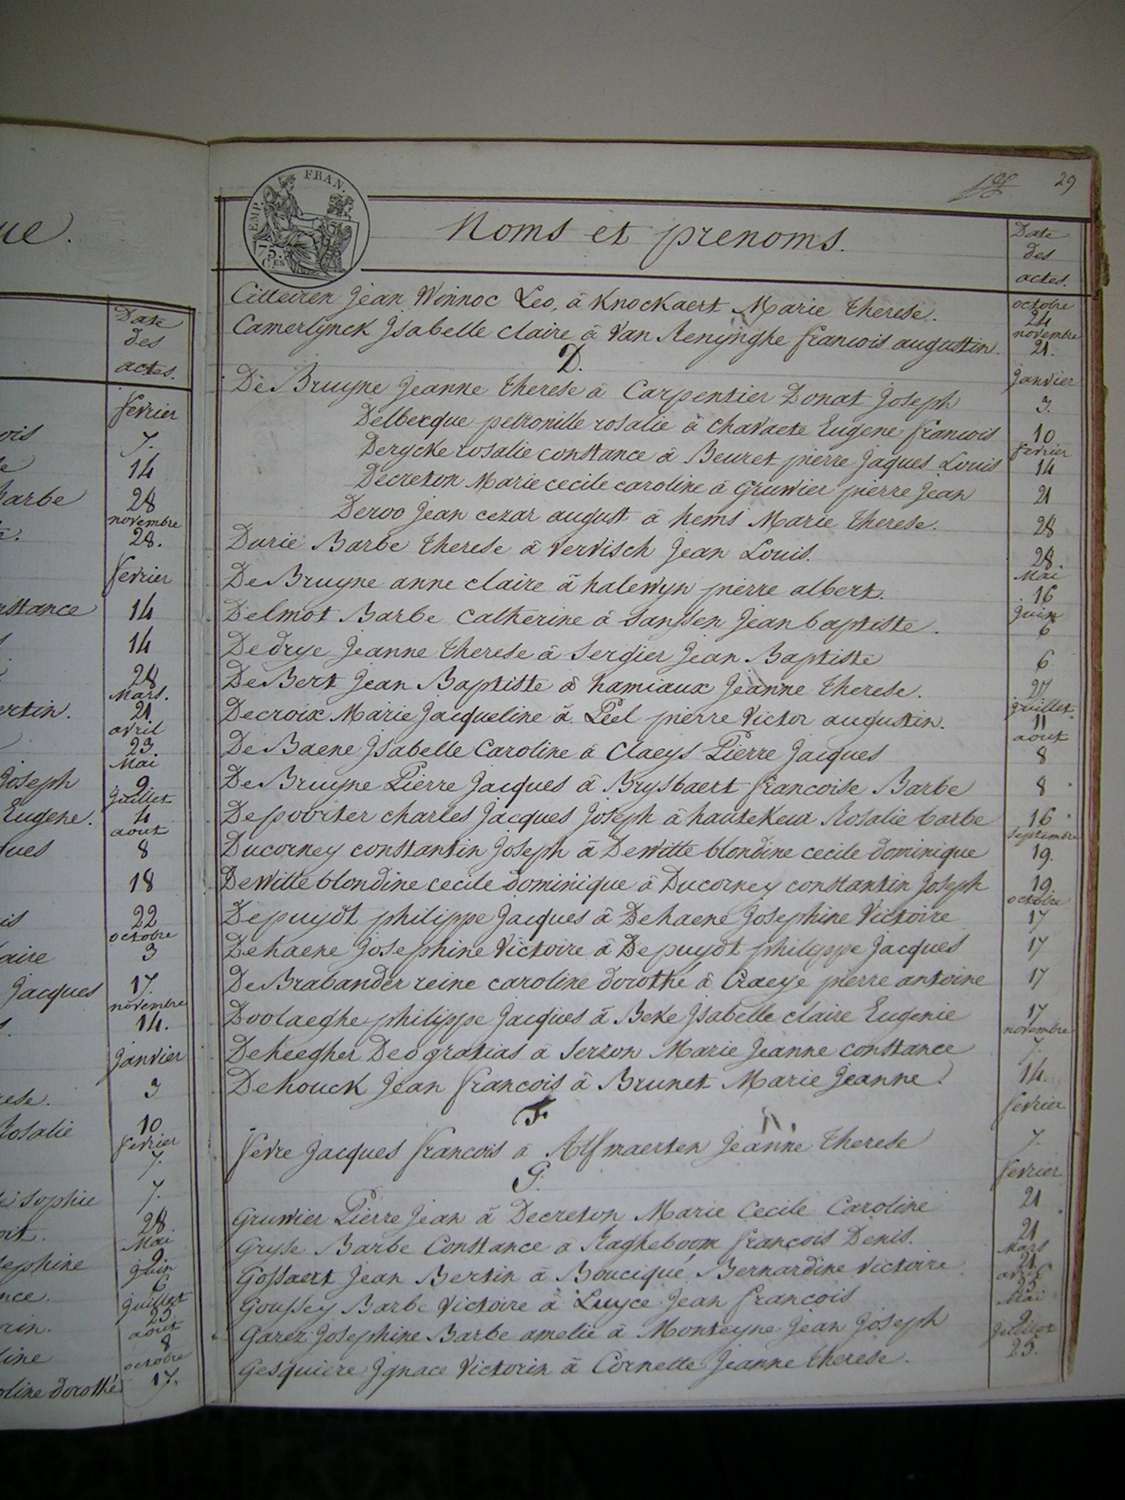 ue.
Date
des
actes.
fevrier
ois
7.
14
Barbe
28
novembre
28.
fevrier
nstance
14
14
28
Mars.
ertin.
21.
avril
23.
Mai
Joseph
9
juillet
Eugene.
4
aout
ques
8
18
is
22
octobre
laire
3
Jacques
17.
novembre
14.
janvier
ese.
3
Rosalie
10
fevrier
7.
sophie
7.
28
Mai
sephine
9
juin
nce.
6
juillet
25
aout
line
8
octobre
oline dorothé
17.
29
TIMP. FRAN.
Noms et prenoms.
Date
des
actes.
Citteiren Jean Winnoc Leo, à Knockaert Marie Therese. octobre 24
Camerlynck Isabelle claire à Van Renynghe francois augustin. novembre 21.
D.
De Bruyne Jeanne Therese à Carpentier Donat Joseph janvier 3.
Delbecque petronille rosalie à Chavaete Eugene francois 10
Derycke rosalie constance à Beuret pierre Jaques Louis fevrier 14
Decreton Marie cecile caroline à Gruwier pierre Jean 21
Deroo Jean cezar august à hems Marie Therese. 28
Durie Barbe Therese à Vervisch Jean Louis. 28.
De Bruyne anne claire à halewyn pierre albert. Mai 16
Delmot Barbe Catherine à Janssen Jean baptiste. juin 6
Dedrye Jeanne Therese à Sergier Jean Baptiste 6
De Bert Jean Baptiste à hamiaux Jeanne Therese. 27
Decroix Marie Jacqueline à Peel pierre Victor augustin. juillet 11
De Baene Isabelle Caroline à Claeys Pierre Jacques aout 8
De Bruyne Pierre Jacques à Brysbaert francoise Barbe 8
Depooiter charles Jacques Joseph à hautekeur Rosalie barbe 16
Ducorney constantin Joseph à Dewitte blondine cecile dominique septembre 19.
Dewitte blondine cecile dominique à Ducorney constantin Joseph 19
Depuydt philippe Jacques à Dehaene Josephine Victoire octobre 17
Dehaene Josephine Victoire à Depuydt philippe Jacques 17
De Brabander reine caroline dorothé à Craeye pierre antoine 17
Doolaeghe philippe Jacques à Beke Isabelle claire Eugenie 17
Deheegher Deo gratias à Serzon Marie Jeanne constance novembre 7.
Dehouck Jean francois à Brunet Marie Jeanne. 14.
F
fevrier
fevre Jacques francois à Alfmaerten Jeanne Therese 7.
G.
fevrier
Gruwier Pierre Jean à Decreton Marie Cecile Caroline 21
Gryse Barbe Constance à Ragheboom François Denis. 21
Gossaert Jean Bertin à Bouciqué Bernardine victoire Mars 21
Goussey Barbe Victoire à Luyce Jean francois avril 23
Garez Josephine Barbe amelie à Monteyne Jean Joseph Mai 9
Gesquiere Ignace Victorin à Cornette Jeanne therese. juillet 25.